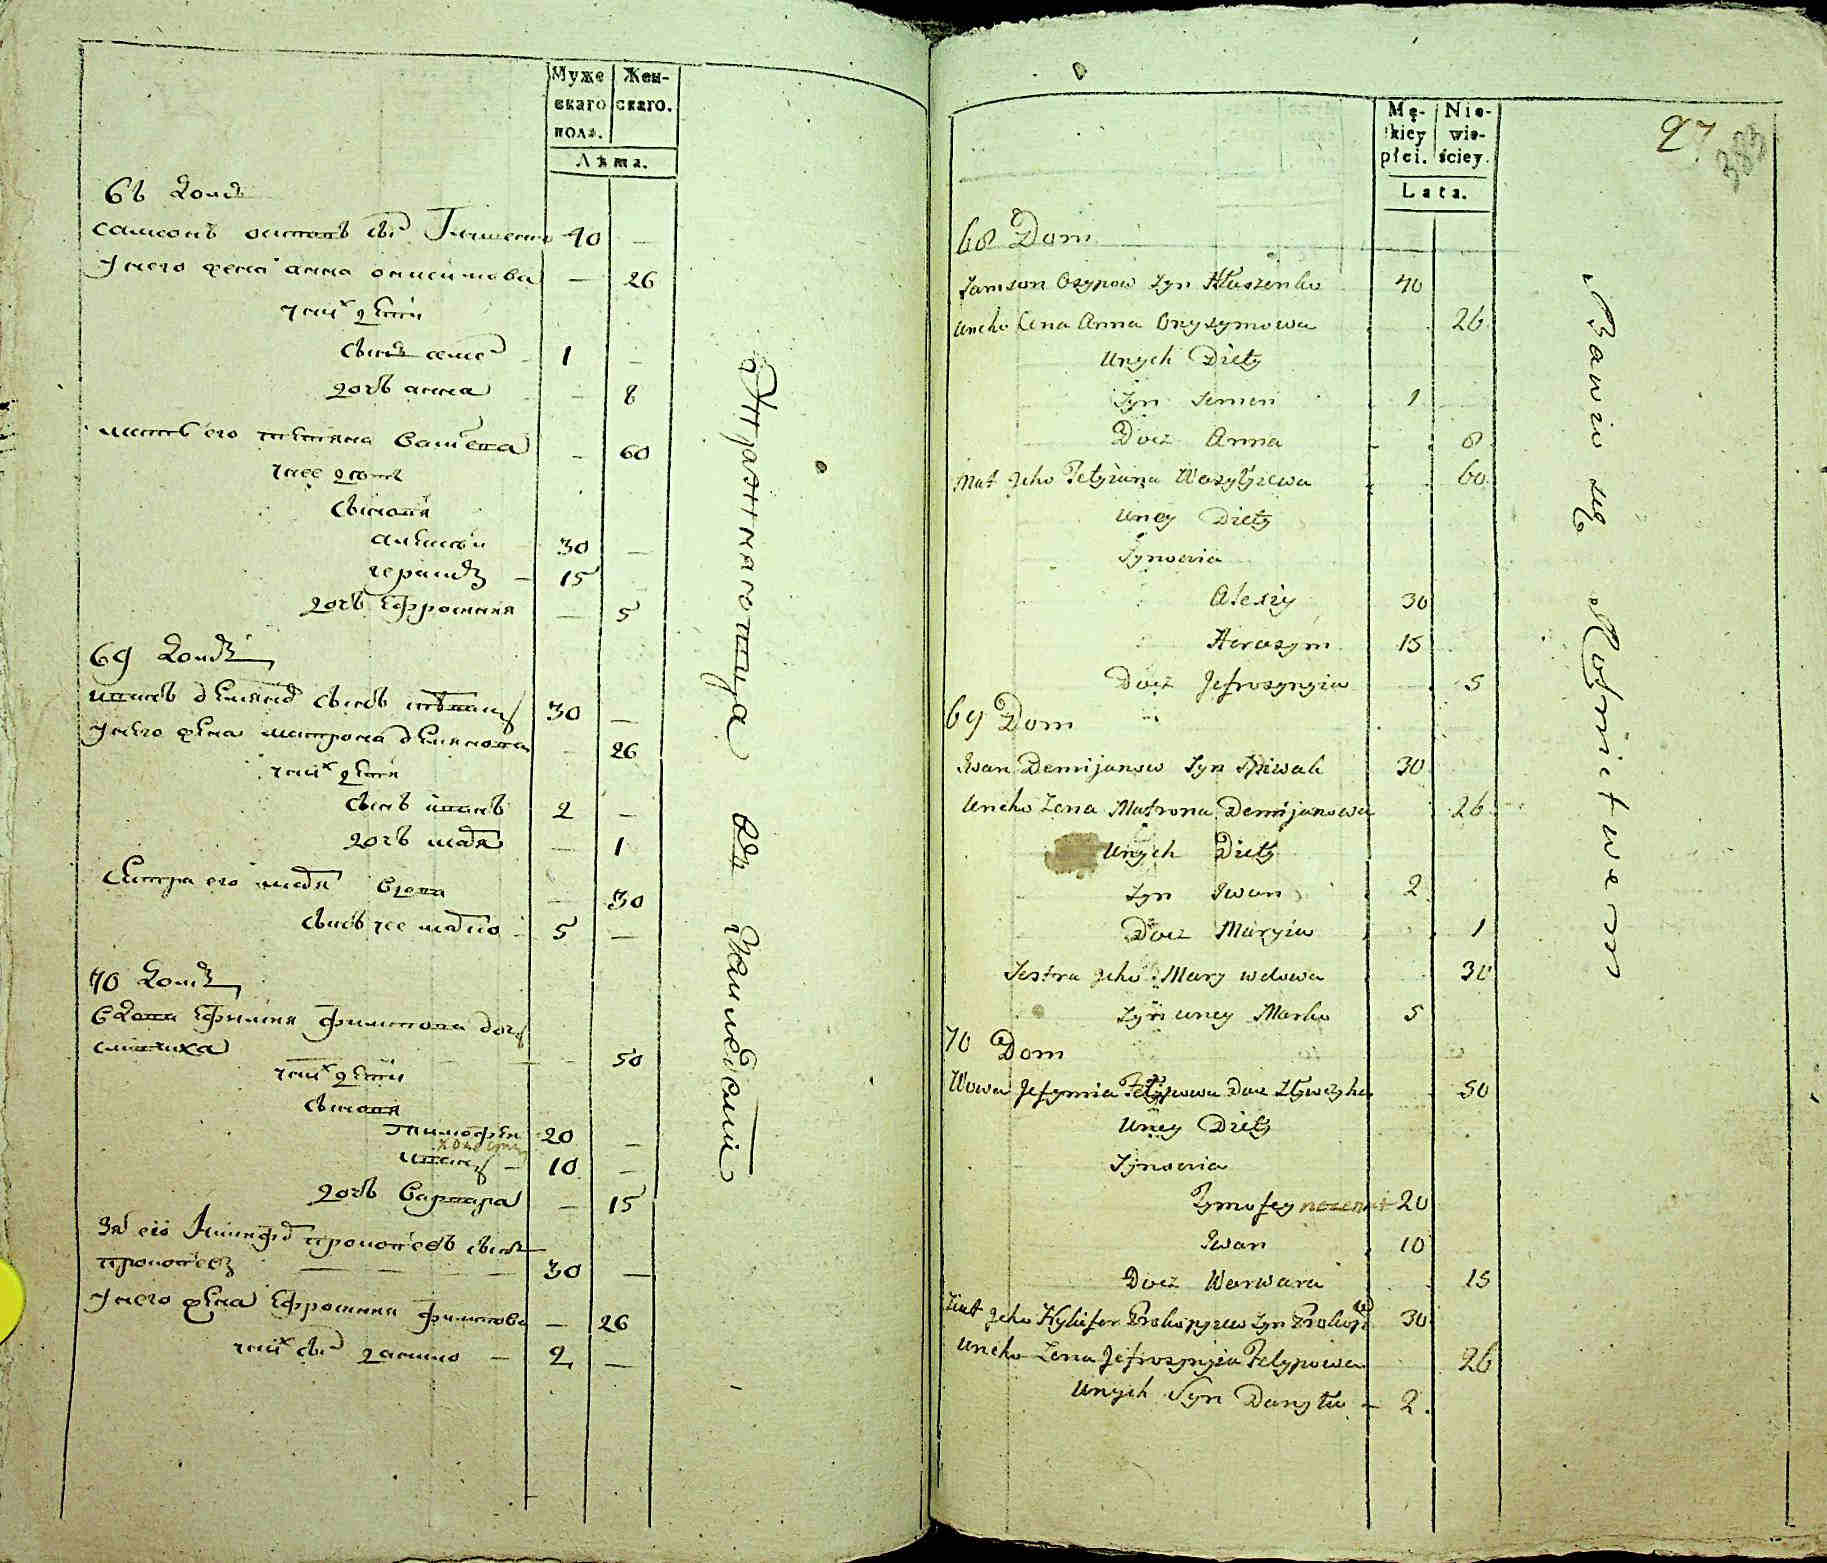 Муже
скаго
пола.
Жен-
скаго.
Лѣта.
68 Домъ
Самсонъ Осиповъ сынъ 40 —
У него жена анна онисимова — 26
у них дѣти
сынъ семе 1 —
дочь анна — 8
мать его татияна Васил — 60
у нее дѣти
сыновя
алексѣй 30 —
герасим 15
дочь Ефросиния — 5
69 Домъ
иванъ демянов сынъ 30 —
У него жена матрона демянова — 26
у них дѣти
сынъ иванъ 2 —
дочь маря — 1
Сестра его марія вдова — 30
сынъ у нее марко 5 —
70 Домъ
вдова Ефимия филипова доч
50
у них дѣти
сыновя
тимофей 20 —
иванъ 10 —
дочь Варвара — 15
Зя его Никифор прокопіевъ сынъ
30 —
У него жена Ефросиния филипова — 26
у них сын данило 2 —
Упражняютца въ
Mę-
kiey
płci.
Nie-
wie-
ściey.
Lata.
97
383
68 Dom
Samson Osypow Syn Hłuszenko 40
Uneho Żena Anna Onysymowa 26
Unych Diety
Syn Semen 1
Docz Anna 8
Mat Jeho Tetyiana Wasylijewa 60
Uney Diety
Synowia
Alexiy 30
Harasym 15
Docz Jefrosynyia 5
69 Dom
Iwan Demijanow Syn Spiwak 30
Uneho Żena Matrona Demijanowa 26
Unych Diety
Syn Iwan 2
Docz Maryia 1
Sestra Jeho Mary wdowa 30
Syn uney Marko 5
70 Dom
Wdowa Jefymia Fylypowa Docz 50
Uney Diety
Synowia
Tymofey 20
Iwan 10
Docz Warwara 15
Ziat Jeho Nykifor Prokopijew Syn 30
Uneho Żena Jefrosynyia Felypowa 26
Unych Syn Danyło 2
Bawio się Rolnictwem